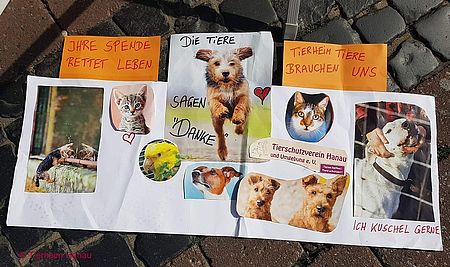 JHRE SPENDE
RETTET LEBEN
DIE TIERE
SAGEN
"DANKE"
TIERHEIM TIERE
BRAUCHEN UNS
Tierschutzverein Hanau
und Umgebung e. V.
ICH KUSCHEL GERNE